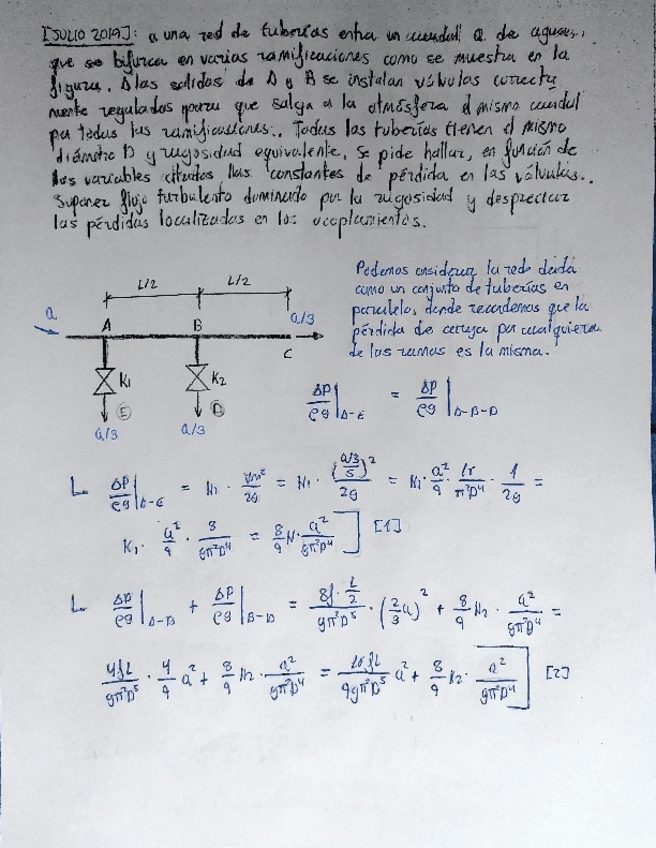 [JULIO 2019]: a una red de tuberías entra un caudal Q de agua,
que se bifurca en varias ramificaciones como se muestra en la
figura. A las salidas de A y B se instalan válvulas correcta
mente reguladas para que salga a la atmósfera el mismo caudal
por todas las ramificaciones. Todas las tuberías tienen el mismo
diámetro D y rugosidad equivalente. Se pide hallar, en función de
las variables citadas las constantes de pérdida en las válvulas.
Suponer flujo turbulento dominado por la rugosidad y despreciar
las pérdidas localizadas en los acoplamientos.
Podemos considerar la red dada
como un conjunto de tuberías en
paralelo, donde recordemos que la
pérdida de carga por cualquiera
de las ramas es la misma.
L/2 L/2
Q A B Q/3
C
K1 K2
E D
Q/3 Q/3
ΔP/ρg|A-E = ΔP/ρg|A-B-D
ΔP/ρg|A-E = K1 · /2g = K1 · (Q/3/S)²/2g = K1 · Q²/9 · 16/π²D⁴ · 1/2g =
K1 · Q²/9 · 8/gπ²D⁴ = 8/9 K · Q²/gπ²D⁴ ] [1]
ΔP/ρg|A-B + ΔP/ρg|B-D = 8f · L/2 / gπ²D⁵ · (2/3 Q)² + 8/9 K2 · Q²/gπ²D⁴ =
4fL/gπ²D⁵ · 4/9 Q² + 8/9 K2 · Q²/gπ²D⁴ = 16fL/9gπ²D⁵ Q² + 8/9 K2 · Q²/gπ²D⁴ ] [2]